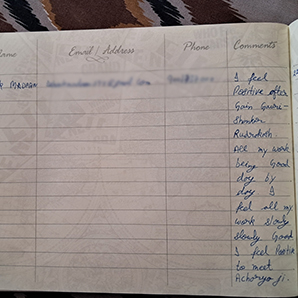 ame Email / Address Phone Comments
I feel
Positive after
Gain Gauri-
Shankar
Rudraksh
All my work
being Good
day by
day I
feel all my
work slowly
slowly Good
I feel Positive
to meet
Acharya ji.